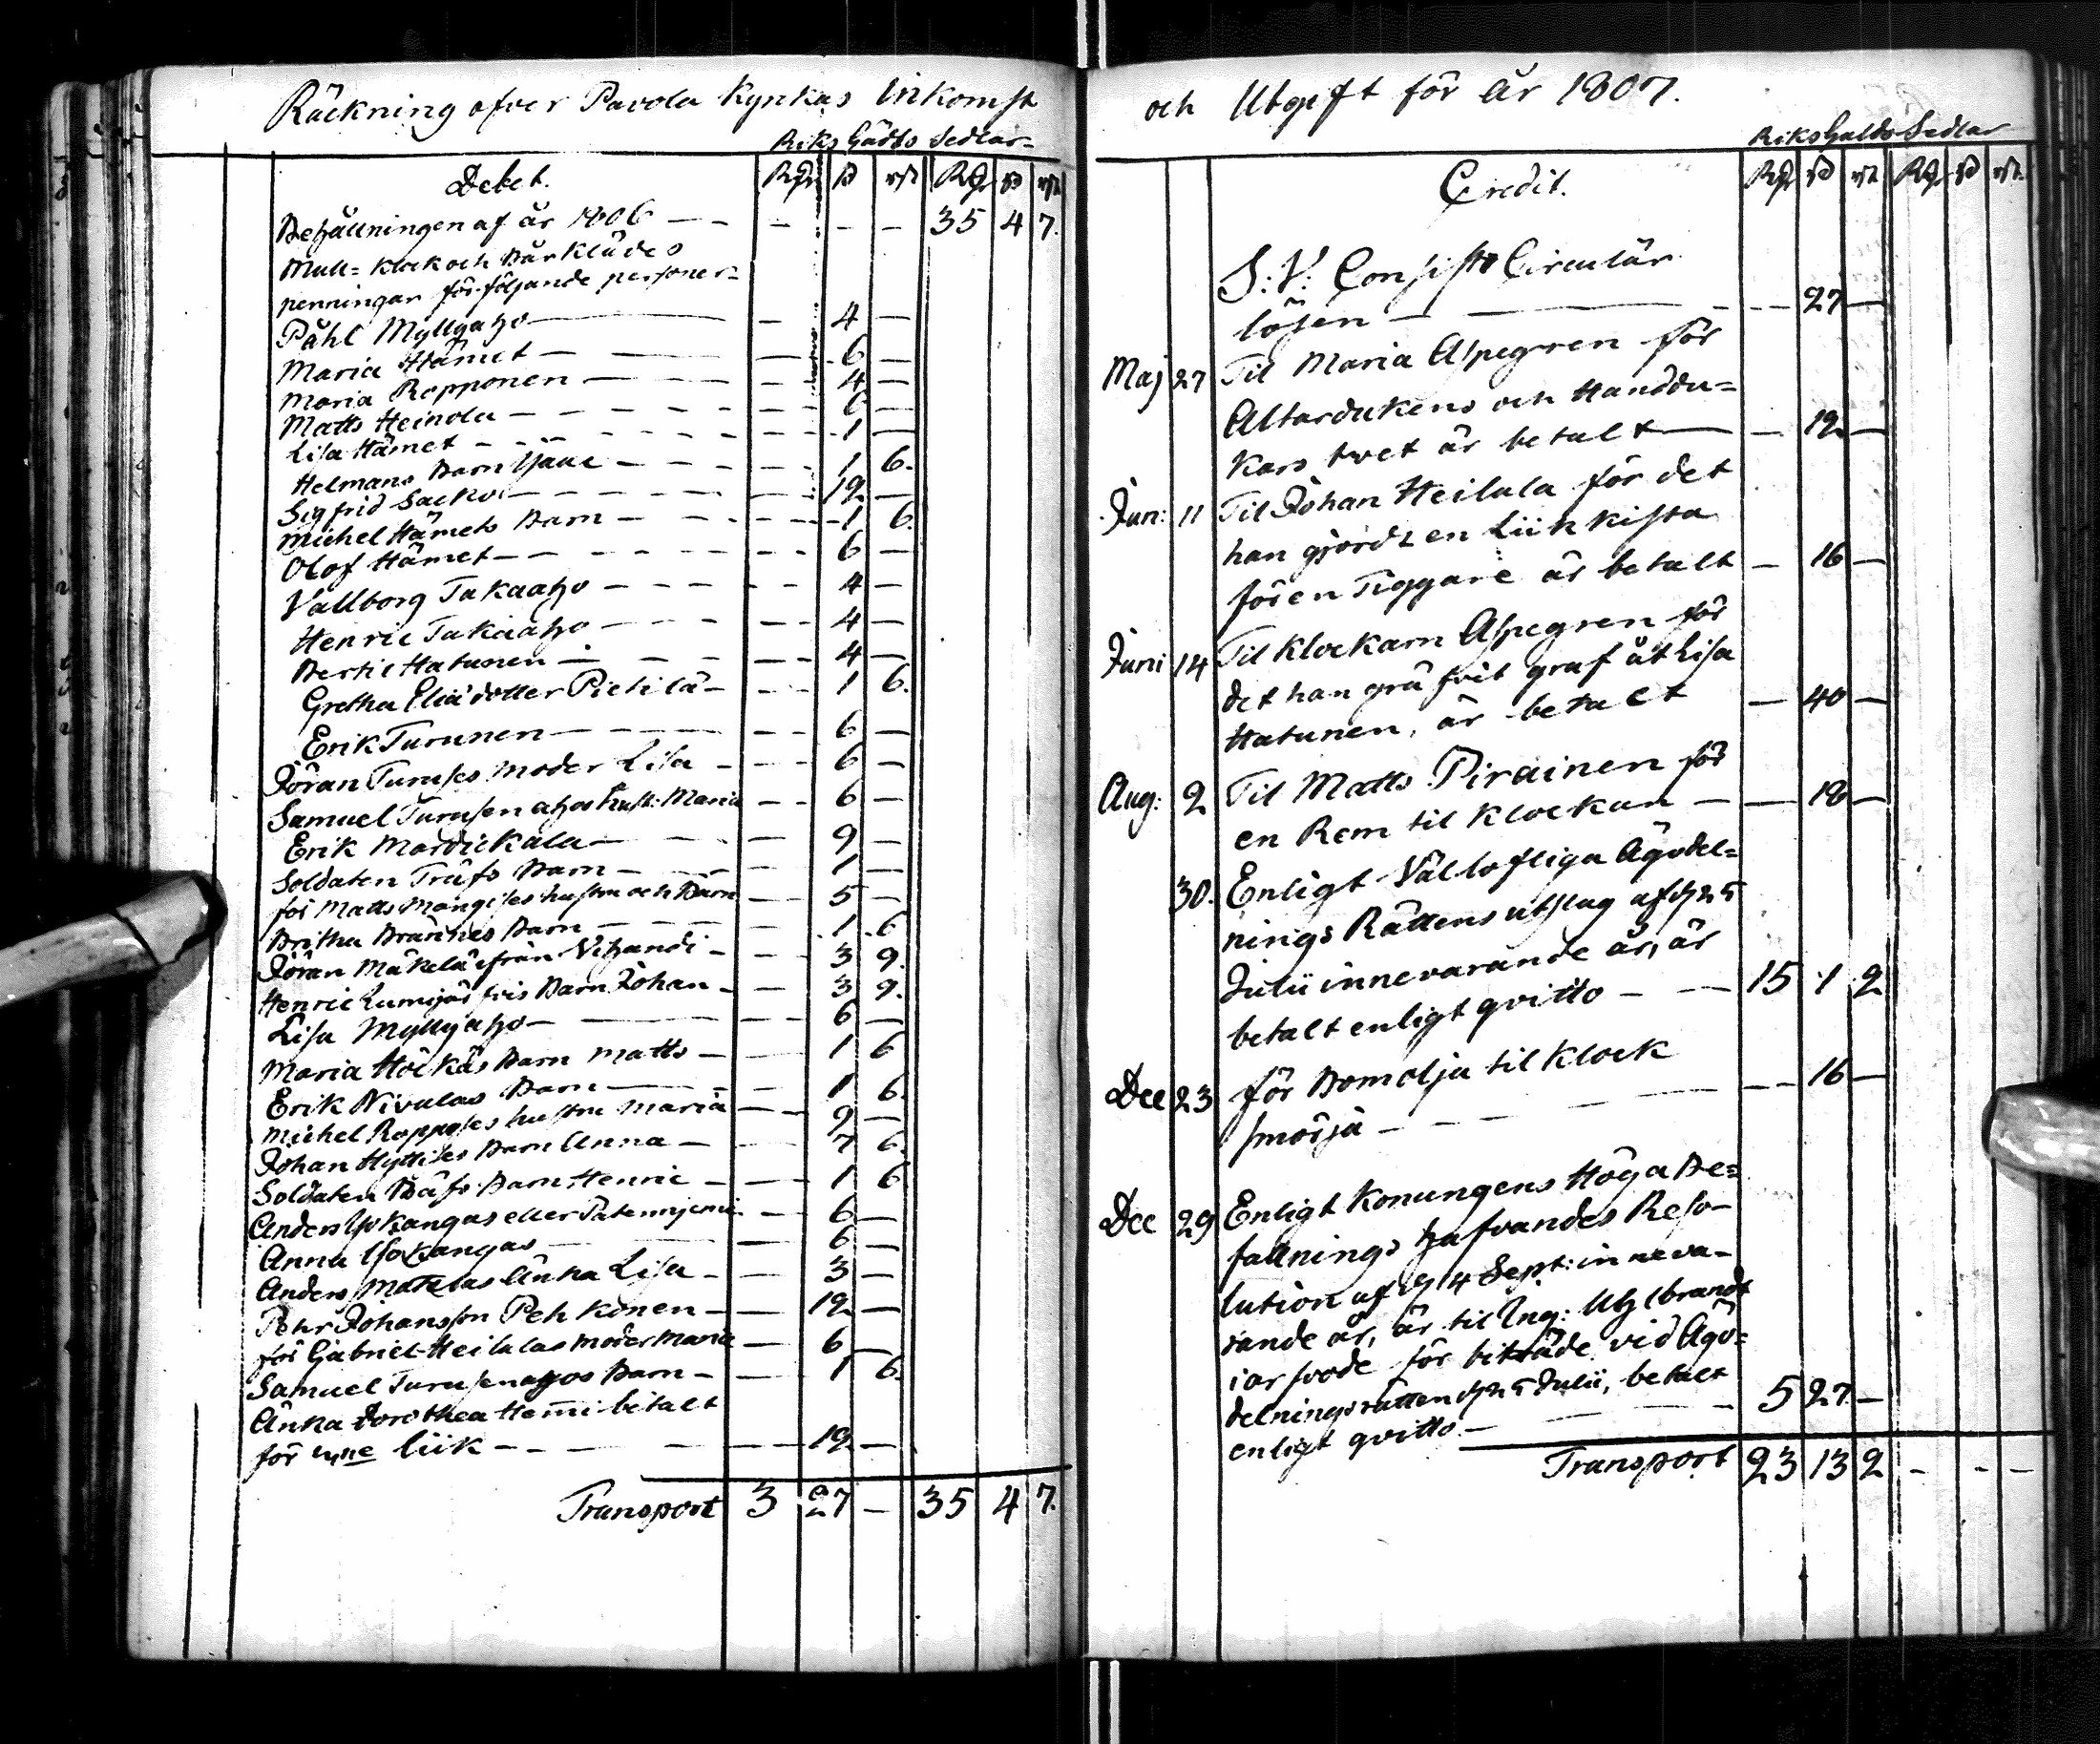 Räckning öfver Pavola Kyrkas Inkomst
Riks Gäldts Sedlar
Debet. Rdr ß rst Rdr ß rst
Behållningen af år 1806 — — - - - 35 4 7.
Mull= Klock och Bårklädes
penningar för följande personer-
Påhl Myllyaho — — 4 —
Maria Hämet — — 6 —
Maria Ropponen — — 4 —
Matts Heinola — — 6 —
Lisa Hämet — — 1 —
Helmans Barn — 1 6.
Sigfrid Sacko — — 12 —
Michel Hämets Barn — — 1 6.
Olof Hämet — — 6 —
Vallborg Takaaho — — 4 —
Henric Takaaho — — 4 —
Bertil Hatunen — — 4 —
Gretha Eliä dotter Pietilä — — 1 6.
Erik Turunen — — 6 —
Jöran Turuses moder Lisa — — 6 —
Samuel Turusenahos hust: Maria — — 6 —
Erik Mardickala — — 9 —
Soldaten Träfs Barn — — 1 —
för Matts Mangises hustru och Barn — — 5 —
Britha Brännes Barn — — 1 6
Jöran Mäkelä ifrån Vihandi — — 3 9.
Henric Lumijärfvis Barn Johan — — 3 9.
Lisa Myllyaho — — 6 —
Maria Höckäs Barn Matts — — 1 6
Erik Nivalas Barn — — 1 6.
Michel Roppoises hustru Maria — — 9 —
Johan Hyttises Barn Anna — — 7 6.
Soldaten Bäfs Barn Henric — — 1 6
Anders Isokangas eller — — 6 —
Anna Isokangas — — 6 —
Anders Matelas Änka Lisa — — 3 —
Pehr Johansson Pehkonen — — 12 —
för Gabriel Heilalas moder Maria — — 6 —
Samuel Turusenahos Barn — — 1 6.
Änka Dorothea Hemmi betalt
för liik — — 12 —
Transport 3 27 — 35 4 7.
och Utgift för år 1807.
Riks Galdts Sedlar
Credit. Rdr ß rst Rdr ß rst.
S: V: Consist: Circulär
lösen — — 27 —
Maj 27 Til Maria Alpegren för
Altardukens och Handdu=
kars tvet är betalt — — 12 —
Jun: 11 Til Johan Heilala för det
han gjordt en Liik kista
för en Tiggare är betalt — 16 —
Juni 14 Til Klockarn Alpegren för
det han gräfvit graf åt Lisa
Hatunen, är betalt — 40 —
Aug: 2 Til Matts Pirainen för
en Rem til Klockan — — 18 —
30. Enligt Vällofliga Ägodel=
nings Rättens utslag af d 25
Julii innevarande år, är
betalt enligt qvitto — — 15 1 2
Dec 23 för Bomolja til Klock
smörja — — 16 —
Dec 29 Enligt Konungens Höga Be=
fallnings hafvandes Reso-
lution af d 14 Sept: inneva-
rande år, är til Ing: Uhlbrandt
i arfvode för biträde vid Ägo=
delningsrätten d 25 Julii, betalt
enligt qvitto. — 5 27 —
Transport 23 13 2 - - -